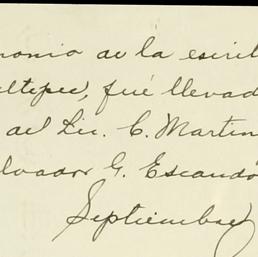 monio de la escrit
ltepec, fué llevad
del Lic. C. Martin
lvador G. Escandó
Septiembre